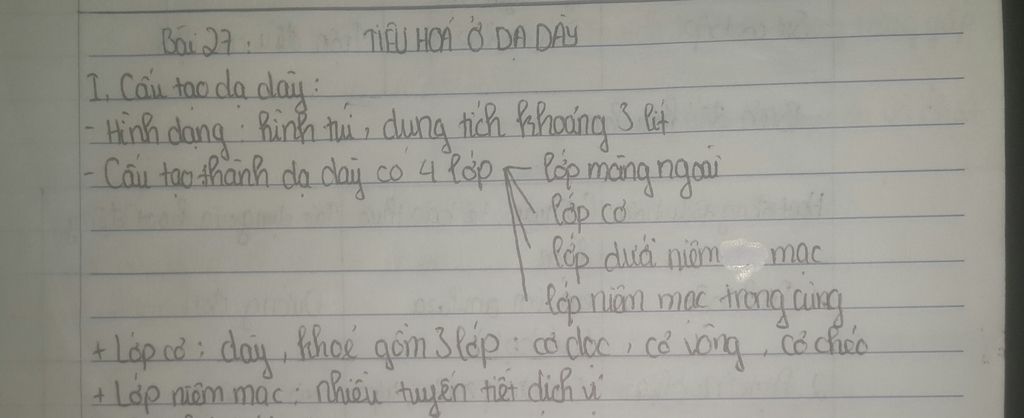 Bài 27: TIÊU HOÁ Ở DẠ DÀY
I. Cấu tạo dạ dày:
- Hình dạng: hình túi, dung tích khoảng 3 lit
- Cấu tạo thành dạ dày có 4 lớp lớp màng ngoài
lớp cơ
lớp dưới niêm mạc
lớp niêm mạc trong cùng
+ Lớp cơ: dày, khoẻ gồm 3 lớp: cơ dọc, cơ vòng, cơ chéo
+ Lớp niêm mạc: nhiều tuyến tiết dịch vị